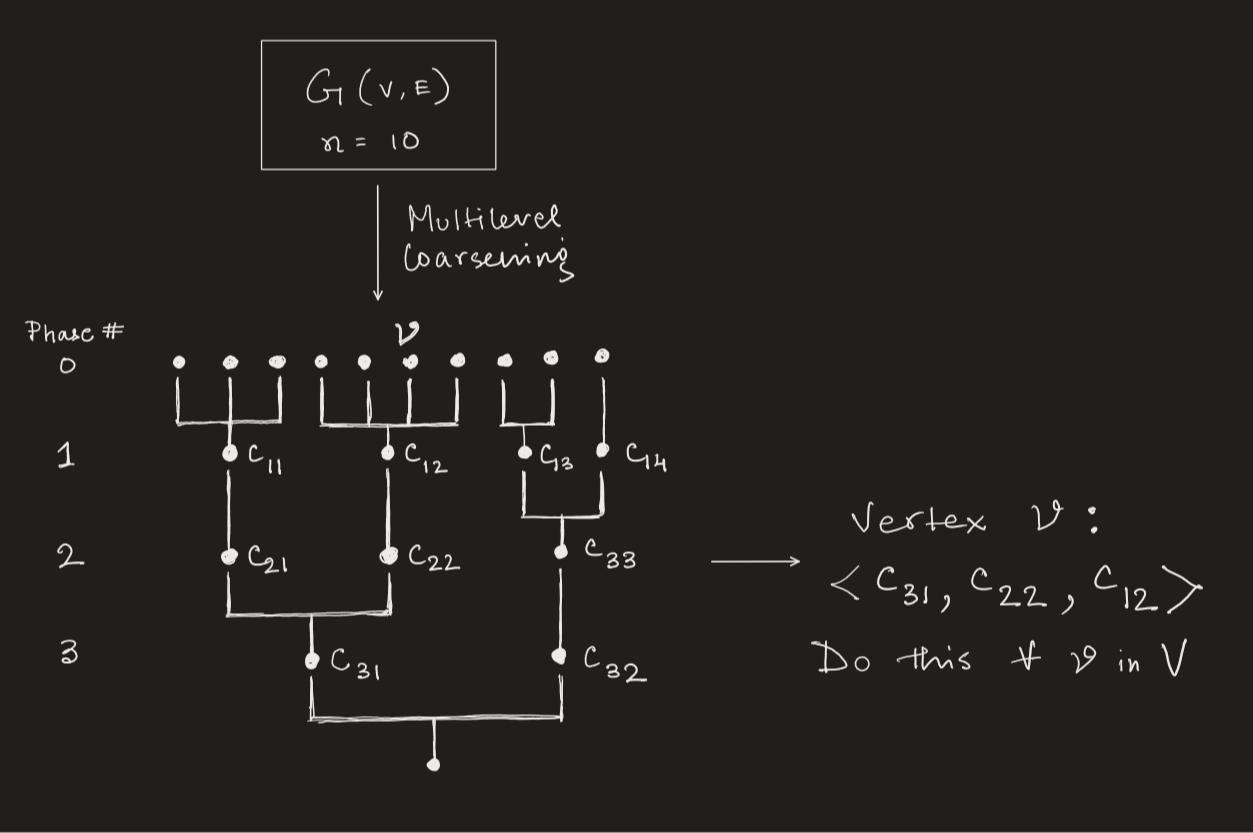 G(V,E)
n = 10
Multilevel
Coarsening
Phase #
v
0
1 C11 C12 C13 C14
2 C21 C22 C33
3 C31 C32
Vertex v :
< C31, C22, C12 >
Do this ∀ v in V